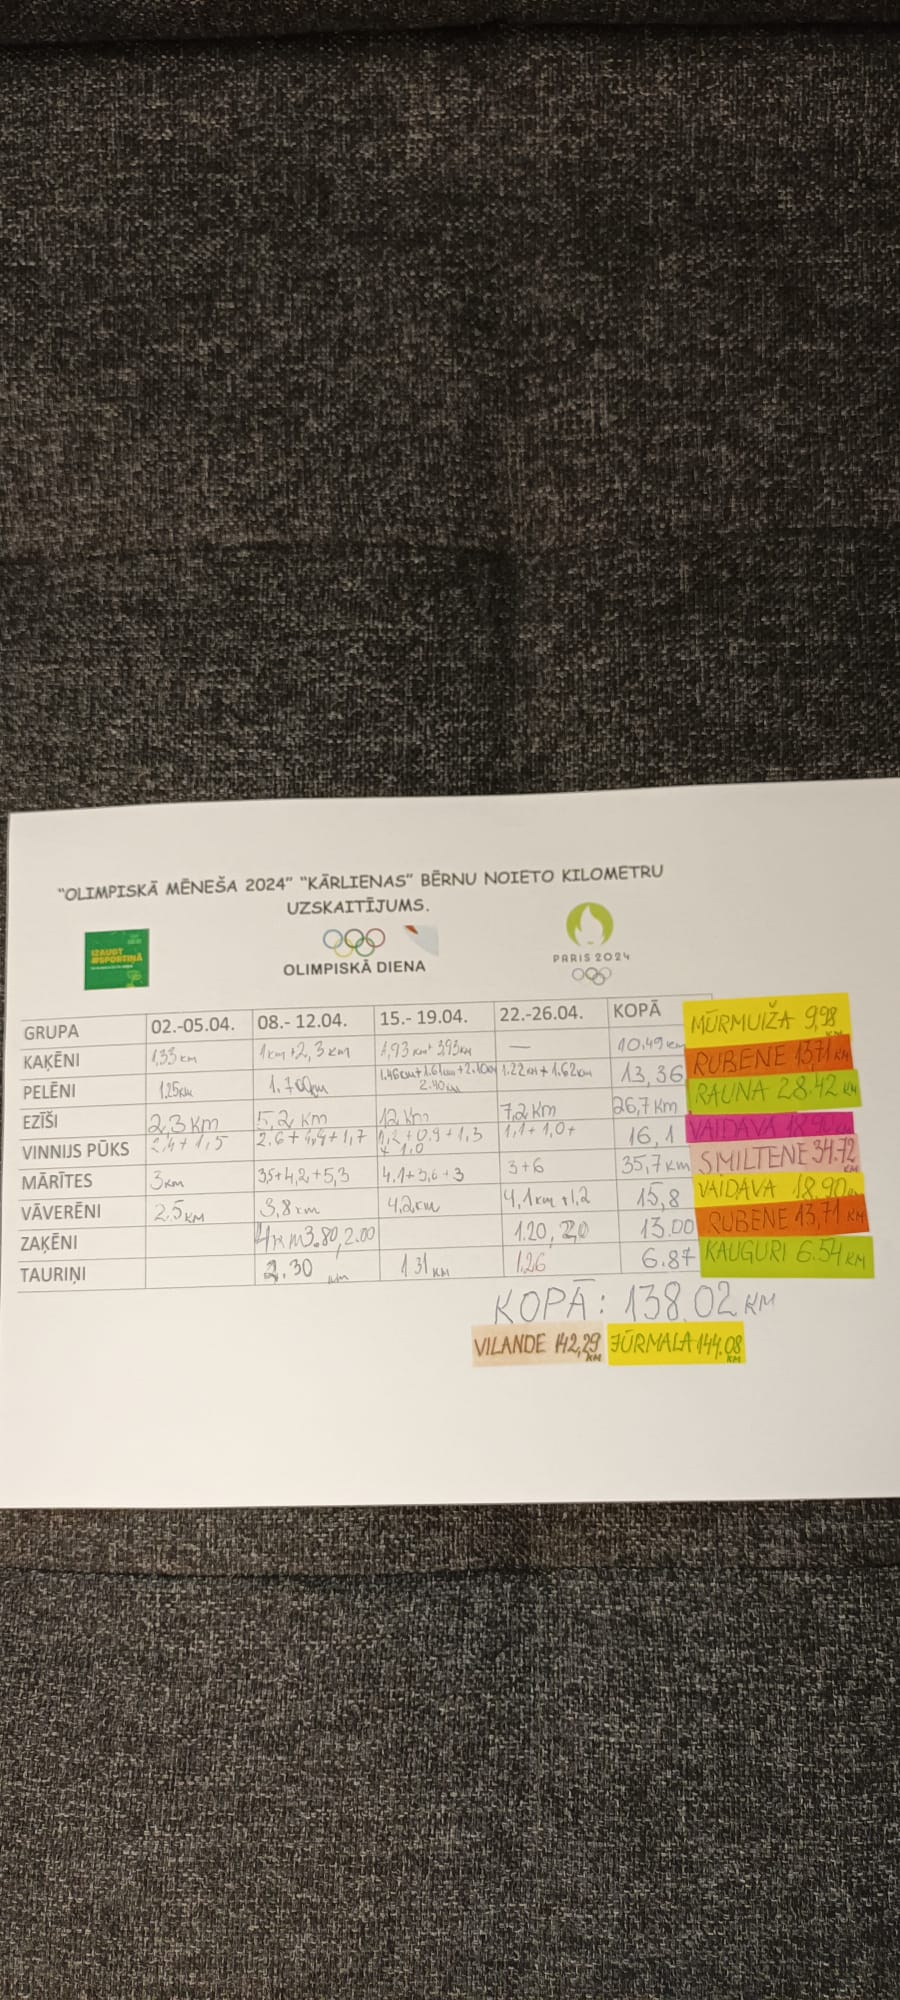 "OLIMPISKĀ MĒNEŠA 2024" "KĀRLIENAS" BĒRNU NOIETO KILOMETRU
UZSKAITĪJUMS.
IZAUGT
#SPORTINĀ
OLIMPISKĀ DIENA
PARIS 2024
GRUPA 02.-05.04. 08.- 12.04. 15.- 19.04. 22.-26.04. KOPĀ MŪRMUIŽA 9,98 KM
KAĶĒNI 1,33 km 1km+2,3km 1,93km+3,93km — 10,49km RUBENE 13,71 KM
PELĒNI 1,25km 1.700km 1.46km+1.61km+2.10km 2.40km 1.22km+1.62km 13,36 RAUNA 28.42 KM
EZĪŠI 2,3 km 5,2 km 12 km 7,2 km 26,7 km VAIDAVA 18.90 km
VINNIJS PŪKS 2,4+1,5 2,6+4,4+1,7 1,2+0,9+1,3 + 1,0 1,1+1,0+ 16,1
MĀRĪTES 3km 3,5+4,2+5,3 4.1+3,6+3 3+6 35,7km SMILTENE 34.72 KM
VĀVERĒNI 2.5 KM 3,8km 4,2km 4,1km+1,2 15,8 VAIDAVA 18.90
ZAĶĒNI 4km 3.80, 2.00 1.20, 13.00 RUBENE 13,71 KM
TAURIŅI 2.30 km 1 31 KM 1,26 6.87 KAUGURI 6.54 KM
KOPĀ: 138.02 KM
VILANDE 142,29 KM JŪRMALA 144.08 KM